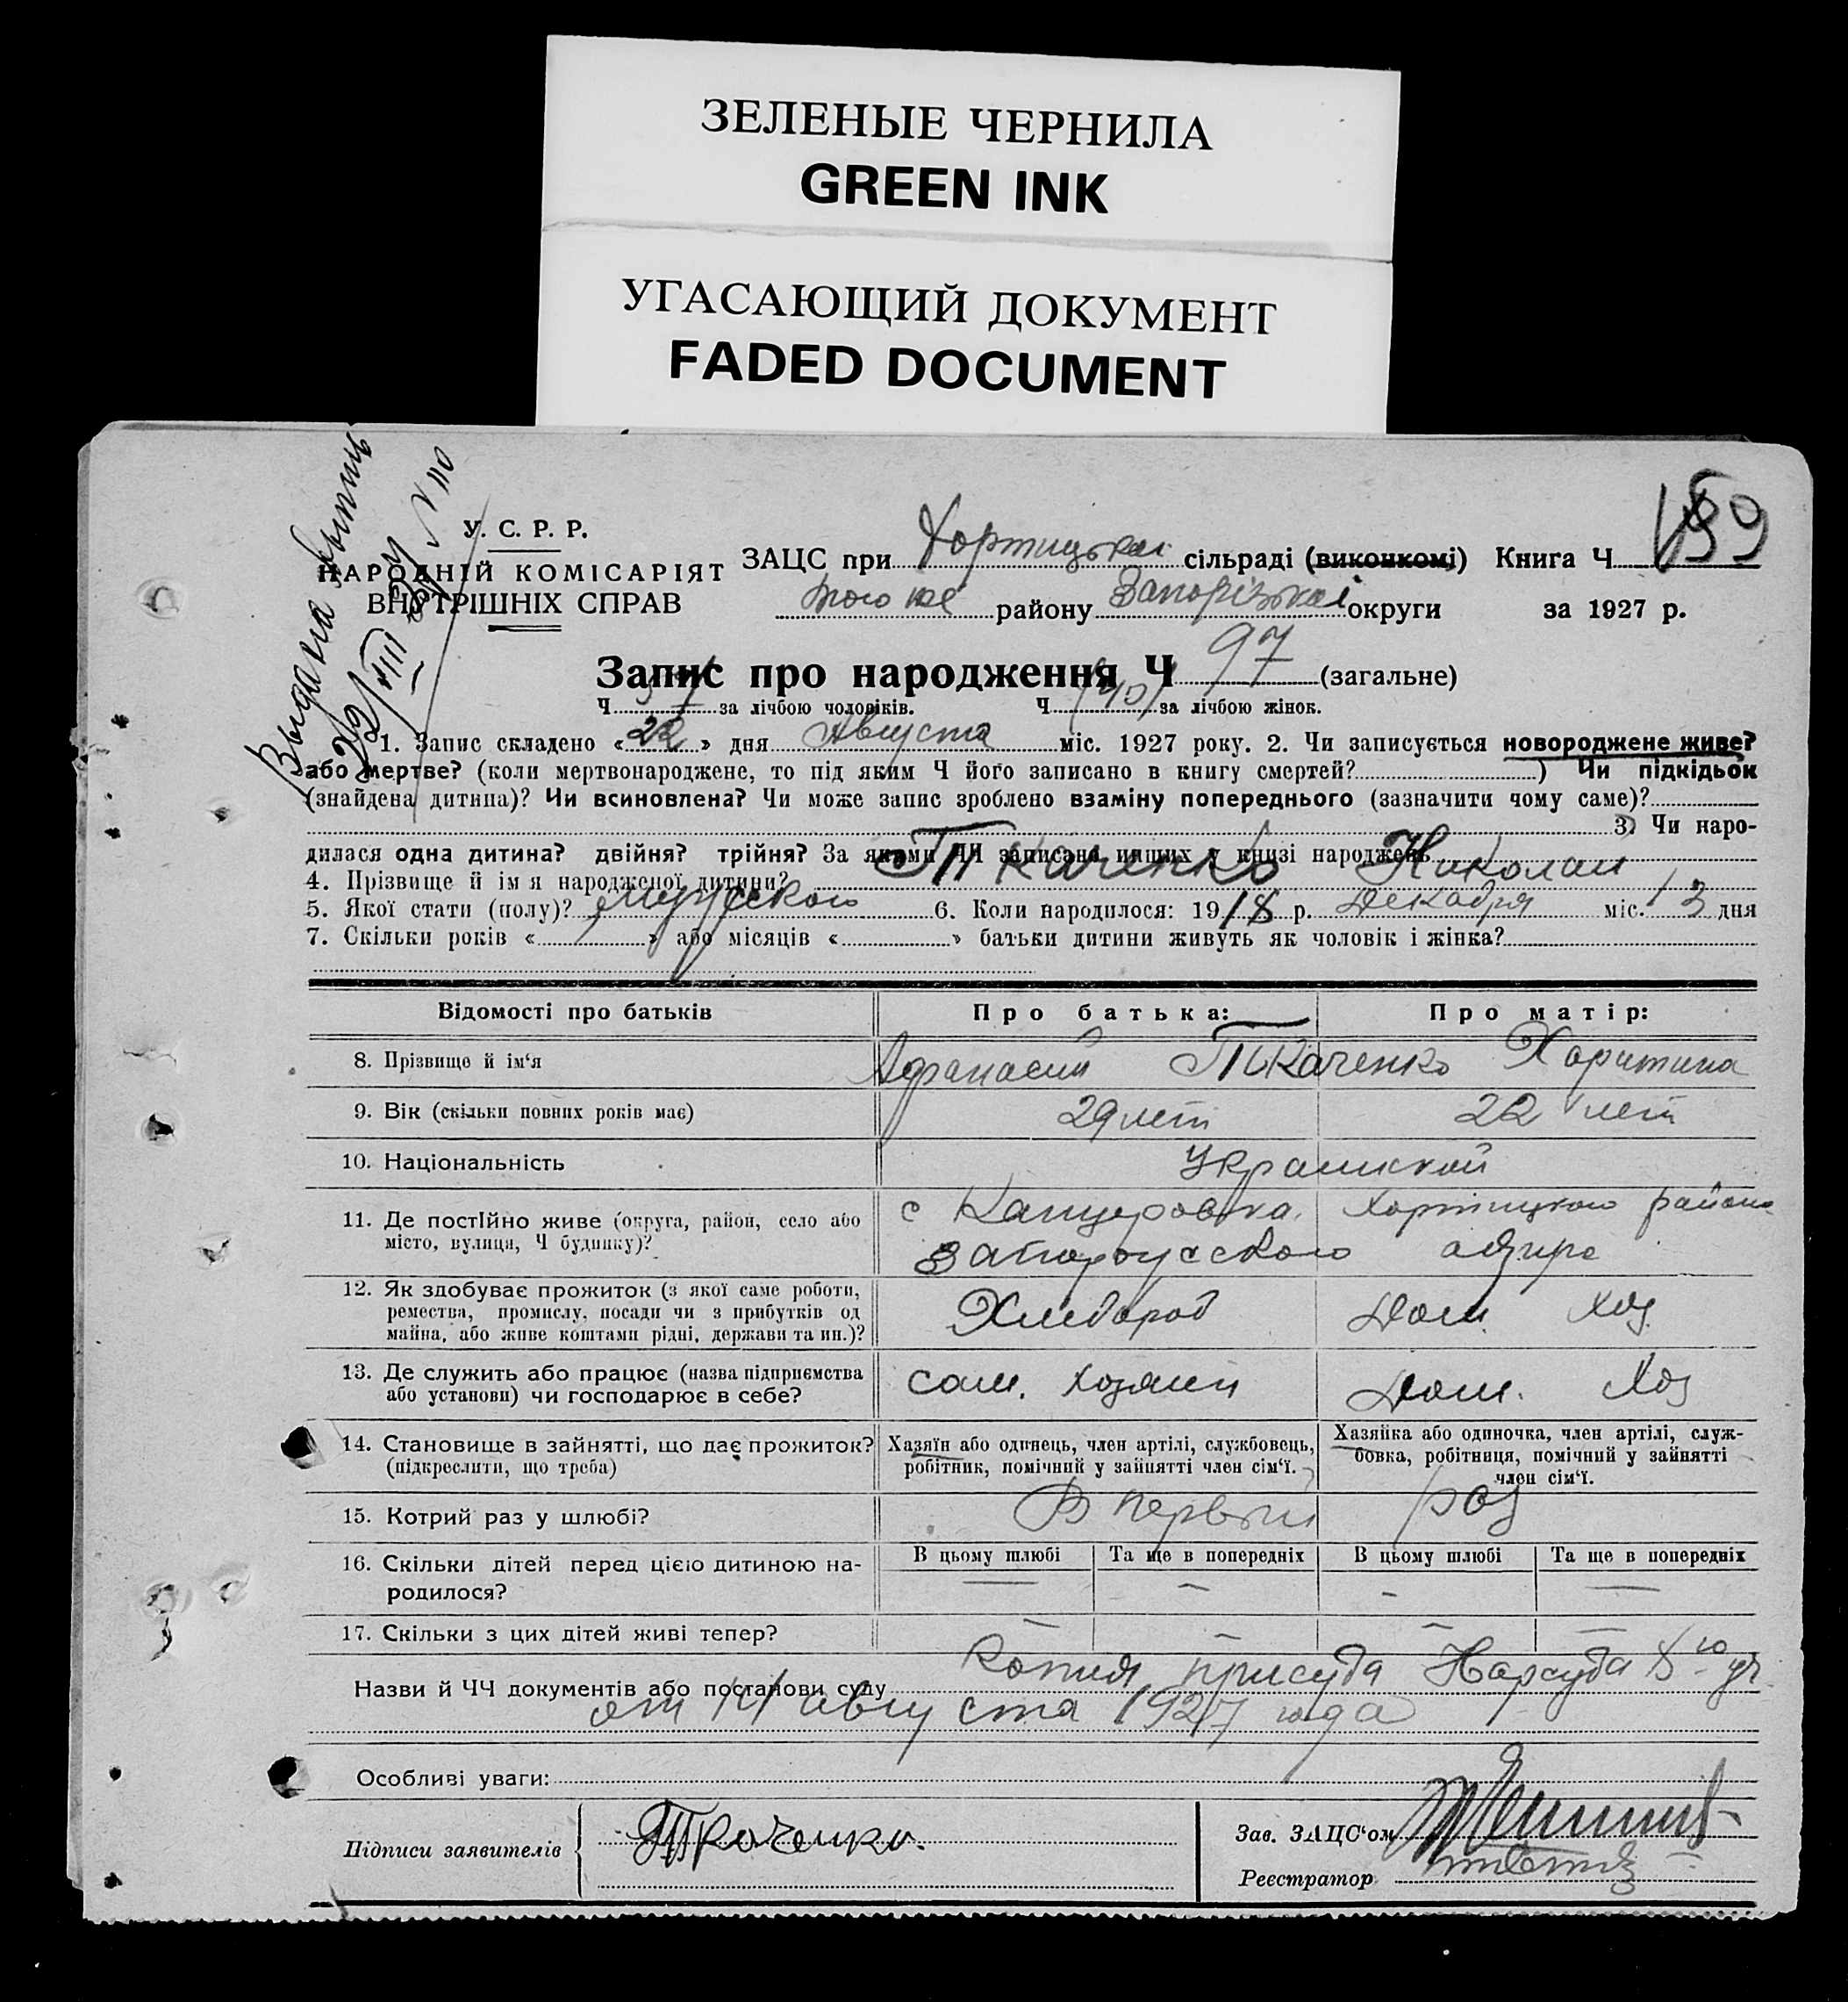 ЗЕЛЕНЫЕ ЧЕРНИЛА
GREEN INK
УГАСАЮЩИЙ ДОКУМЕНТ
FADED DOCUMENT
Выдана выпись
22/VIII N 110
У. С. Р. Р.
НАРОДНІЙ КОМІСАРІЯТ
ВНУТРІШНІХ СПРАВ
ЗАЦС при Хортицькой сільраді (виконкомі) Книга Ч 59
того же району Запорізькой округи за 1927 р.
Запис про народження Ч 97 (загальне)
Ч 57 за лічбою чоловіків. Ч (40) за лічбою жінок.
1. Запис складено «22» дня Августа міс. 1927 року. 2. Чи записується новороджене живе?
або мертве? (коли мертвонароджене, то під яким Ч його записано в книгу смертей? ) Чи підкідьок
(знайдена дитина)? Чи всиновлена? Чи може запис зроблено взаміну попереднього (зазначити чому саме)?
3) Чи наро-
дилася одна дитина? двійня? трійня? За якими ЧЧ записано инших у книзі народжень
4. Прізвище й ім я народженої дитини? Ткаченко Николай
5. Якої стати (полу)? мужеского 6. Коли народилося: 19 р. Декабря міс. 13 дня
7. Скільки років « » або місяців « » батьки дитини живуть як чоловік і жінка?
Відомості про батьків Про батька: Про матір:
8. Прізвище й ім‘я Афанасий Ткаченко Харитина
9. Вік (скільки повних років має) 29 лет 22 лет
10. Національність Украинской
11. Де постІйно живе (округа, район, село або с Канцеровка, Хортицкого района
місто, вулиця, Ч будинку)? Запорожского округа
12. Як здобуває прожиток (з якої саме роботи,
ремества, промислу, посади чи з прибутків од
майна, або живе коштами рідні, держави та ин.)? Хлебороб Дом. хоз.
13. Де служить або працює (назва підприємства
або установи) чи господарює в себе? сам. хозяин Дом. Хоз
14. Становище в зайнятті, що дає прожиток? Хазяїн або одинець, член артілі, службовець, Хазяйка або одиночка, член артілі, служ-
(підкреслити, що треба) робітник, помічний у зайнятті член сім‘ї. бовка, робітниця, помічний у зайнятті
член сім‘ї.
15. Котрий раз у шлюбі? В первый раз
16. Скільки дітей перед цією дитиною на- В цьому шлюбі Та ще в попередніх В цьому шлюбі Та ще в попередніх
родилося? — — - —
17. Скільки з цих дітей живі тепер? — — — —
Назви й ЧЧ документів або постанови суду Копия присуда Нарсуда
от 14 августа 1927 года
Особливі уваги:
Підписи заявителів Ткаченко.
Зав. ЗАЦС‘ом
Реєстратор